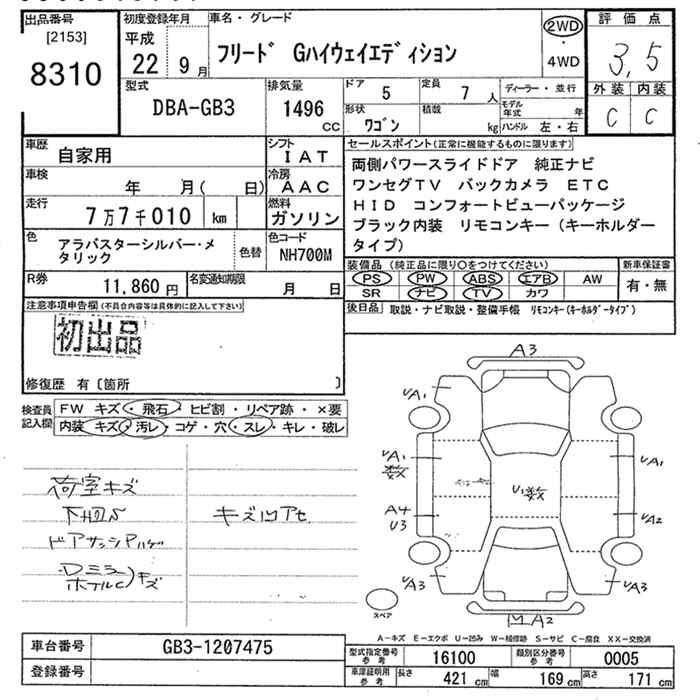 出品番号
[2153]
8310
初度登録年月
平成
22 9月
車名・グレード
フリード Gハイウェイエディション
2WD
・
4WD
評価点
3,5
外装 内装
C C
型式
DBA-GB3
排気量
1496
CC
ドア
5
定員
7人
ディーラー・並行
形状
ワゴン
積載
kg
モデル年式 年
ハンドル 左・右
車歴
自家用
シフト
IAT
車検
年 月( 日)
冷房
AAC
走行
7万7千010 km
燃料
ガソリン
色
アラバスターシルバー・メ
タリック
色替
色コード
NH700M
R券
11,860円
名変通知期限
月 日
セールスポイント(正常に機能するものに限ります)
両側パワースライドドア 純正ナビ
ワンセグTV バックカメラ ETC
HID コンフォートビューパッケージ
ブラック内装 リモコンキー(キーホルダー
タイプ)
装備品 (純正品に限り○をつけてください)
PS PW ABS エアB AW
SR ナビ TV カワ
新車保証書
有・無
後日品 取説・ナビ取説・整備手帳 リモコンキー(キーホルダータイプ)
注意事項申告欄(不具合内容等は具体的に記入して下さい)
初出品
修復歴 有〔箇所 〕
検査員
記入欄
FW キズ・飛石・ヒビ割・リペア跡・×要
内装 キズ・汚レ・コゲ・穴・スレ・キレ・破レ
荷室キズ
下回S
ドアサッシAハゲ
キズ凹アセ
A3
UA1
UA1
数
UA1
A4
U3
U1数
UA2
UA3
UA3
A2
スペア
A-キズ E-エクボ U-凹み W-補修跡 S-サビ C-腐食 XX-交換済
車台番号
GB3-1207475
登録番号
型式指定番号
参考
16100
類別区分番号
参考
0005
車庫証明用
参考
長さ
421 cm
幅
169 cm
高さ
171 cm